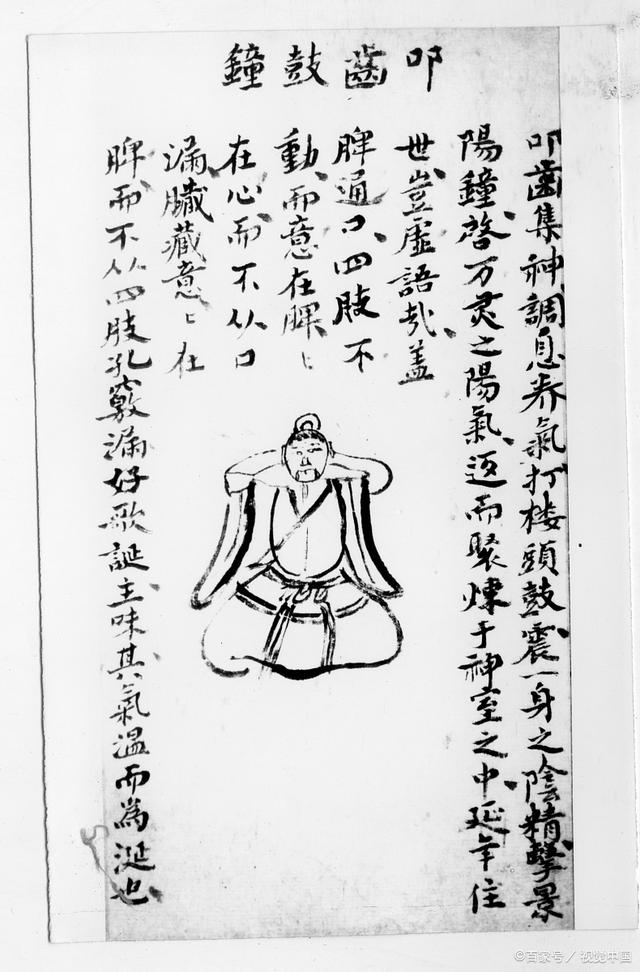 叩齒鼓鐘
叩齒集神調息养氣打楼頭鼓震一身之陰精擊景
陽鐘啓万灵之陽氣迈而聚煉于神室之中延年住
世豈虛語哉盖
脾通口四肢不
動而意在脾〻
在心而不从口
漏臟藏意〻在
脾而不从四肢孔竅漏好歌誕主味其氣温而為涎也
©百家号／视觉中国